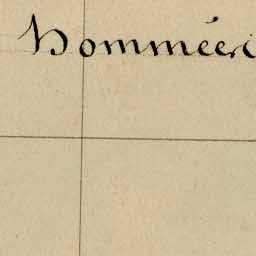 Nommées